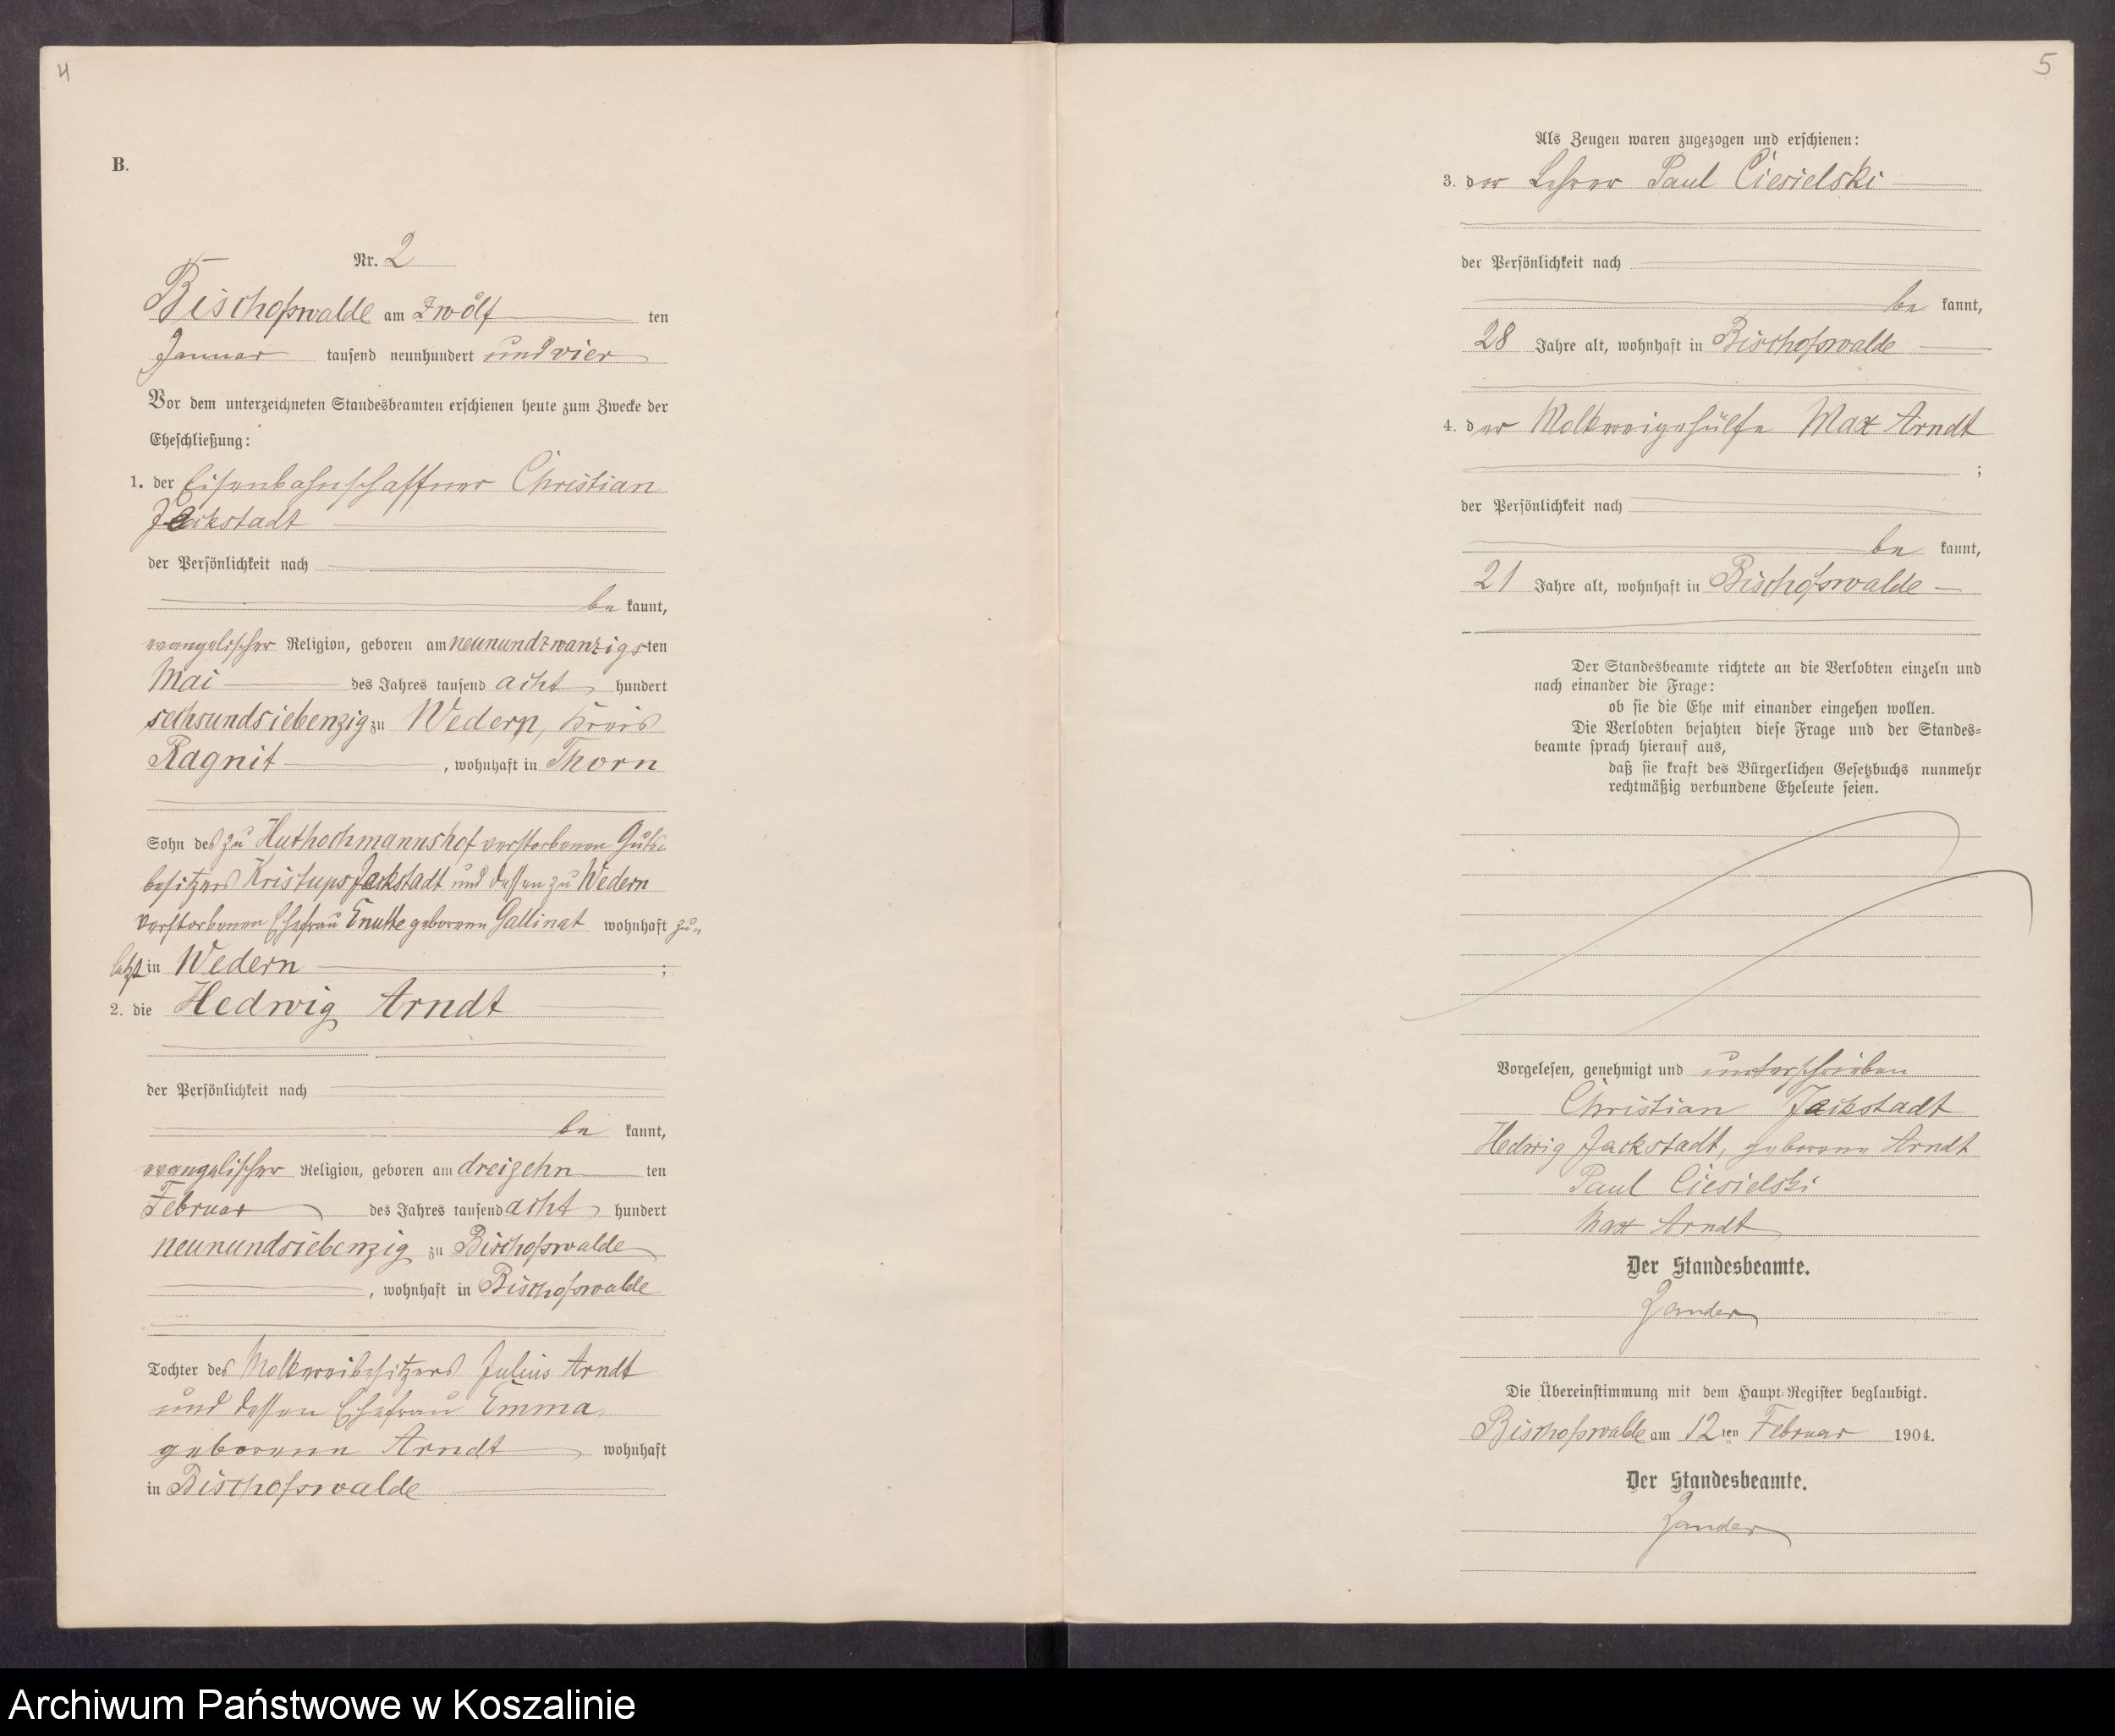 4
B.
Nr. 2
Bischofswalde am zwölf ten
Januar tausend neunhundert und vier
Vor dem unterzeichneten Standesbeamten erschienen heute zum Zwecke der
Eheschließung:
1. der Eisenbahnschaffner Christian
Jackstadt
der Persönlichkeit nach
be kannt,
evangelischer Religion, geboren am neunundzwanzigsten
Mai des Jahres tausend acht hundert
sechsundsiebenzig zu Wedern, Kreis
Ragnit, wohnhaft in Thorn
Sohn des zu verstorbenen Guts-
besitzers Kristups Jackstadt und dessen zu Wedern
verstorbenen Ehefrau geborene Gallinat wohnhaft zu-
letzt in Wedern ;
2. die Hedwig Arndt
der Persönlichkeit nach
be kannt,
evangelischer Religion, geboren am dreizehn ten
Februar des Jahres tausend acht hundert
neunundsiebenzig zu Bischofswalde
, wohnhaft in Bischofswalde
Tochter des Molkereibesitzers Julius Arndt
und dessen Ehefrau Emma,
geborene Arndt wohnhaft
in Bischofswalde
5
Als Zeugen waren zugezogen und erschienen:
3. der Lehrer Paul Ciesielski
der Persönlichkeit nach
be kannt,
28 Jahre alt, wohnhaft in Bischofswalde
4. der Molkereigehülfe Max Arndt
;
der Persönlichkeit nach
be kannt,
21 Jahre alt, wohnhaft in Bischofswalde
Der Standesbeamte richtete an die Verlobten einzeln und
nach einander die Frage:
ob sie die Ehe mit einander eingehen wollen.
Die Verlobten bejahten diese Frage und der Standes-
beamte sprach hierauf aus,
daß sie kraft des Bürgerlichen Gesetzbuchs nunmehr
rechtmäßig verbundene Eheleute seien.
Vorgelesen, genehmigt und unterschrieben
Christian Jackstadt
Hedwig Jackstadt, geborene Arndt
Paul Ciesielski
Max Arndt
Der Standesbeamte.
Zander
Die Übereinstimmung mit dem Haupt-Register beglaubigt.
Bischofswalde am 12ten Februar 1904.
Der Standesbeamte.
Zander
Archiwum Państwowe w Koszalinie